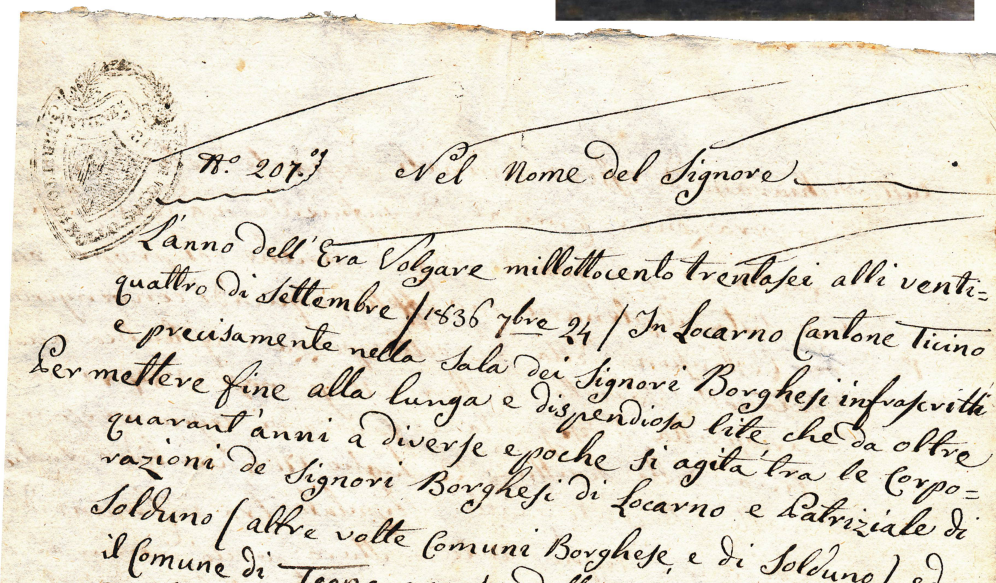 N.° 207. Nel Nome del Signore
L'anno dell'Era Volgare millottocento trentasei alli venti=
quattro di Settembre /1836 7bre 24/ In Locarno Cantone Ticino
e precisamente nella Sala dei Signori Borghesi infrascritti
Per mettere fine alla lunga e dispendiosa lite che da oltre
quarant'anni a diverse epoche si agita tra le Corpo=
razioni de Signori Borghesi di Locarno e Patriziale di
Solduno (altre volte Comuni Borghese, e di Solduno) ed
il Comune di